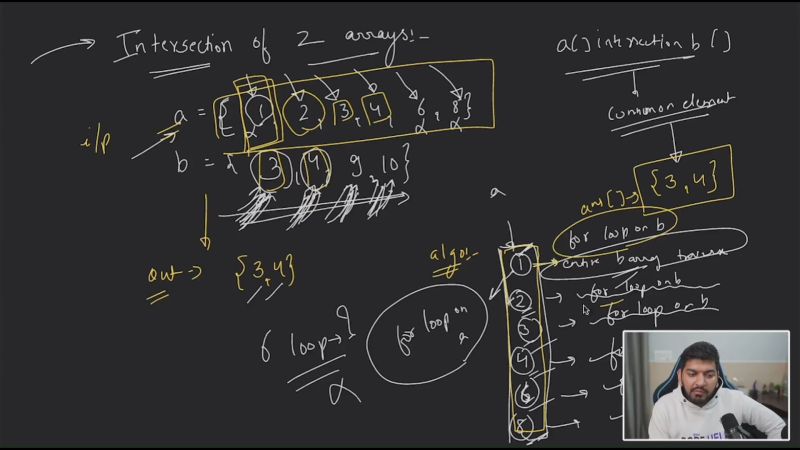 Intersection of 2 arrays:-
a[] intersection b[]
common element
i/p
a = { 1, 2, 3, 4, 6, 8}
b = { 3, 4, 9, 10}
ans[] → {3,4}
a
out → {3,4}
algo:-
for loop on b
1 → entire b array traverse
2 → for loop on b
3 → for loop on b
4 →
6 →
8 →
for loop on a
6 loop →